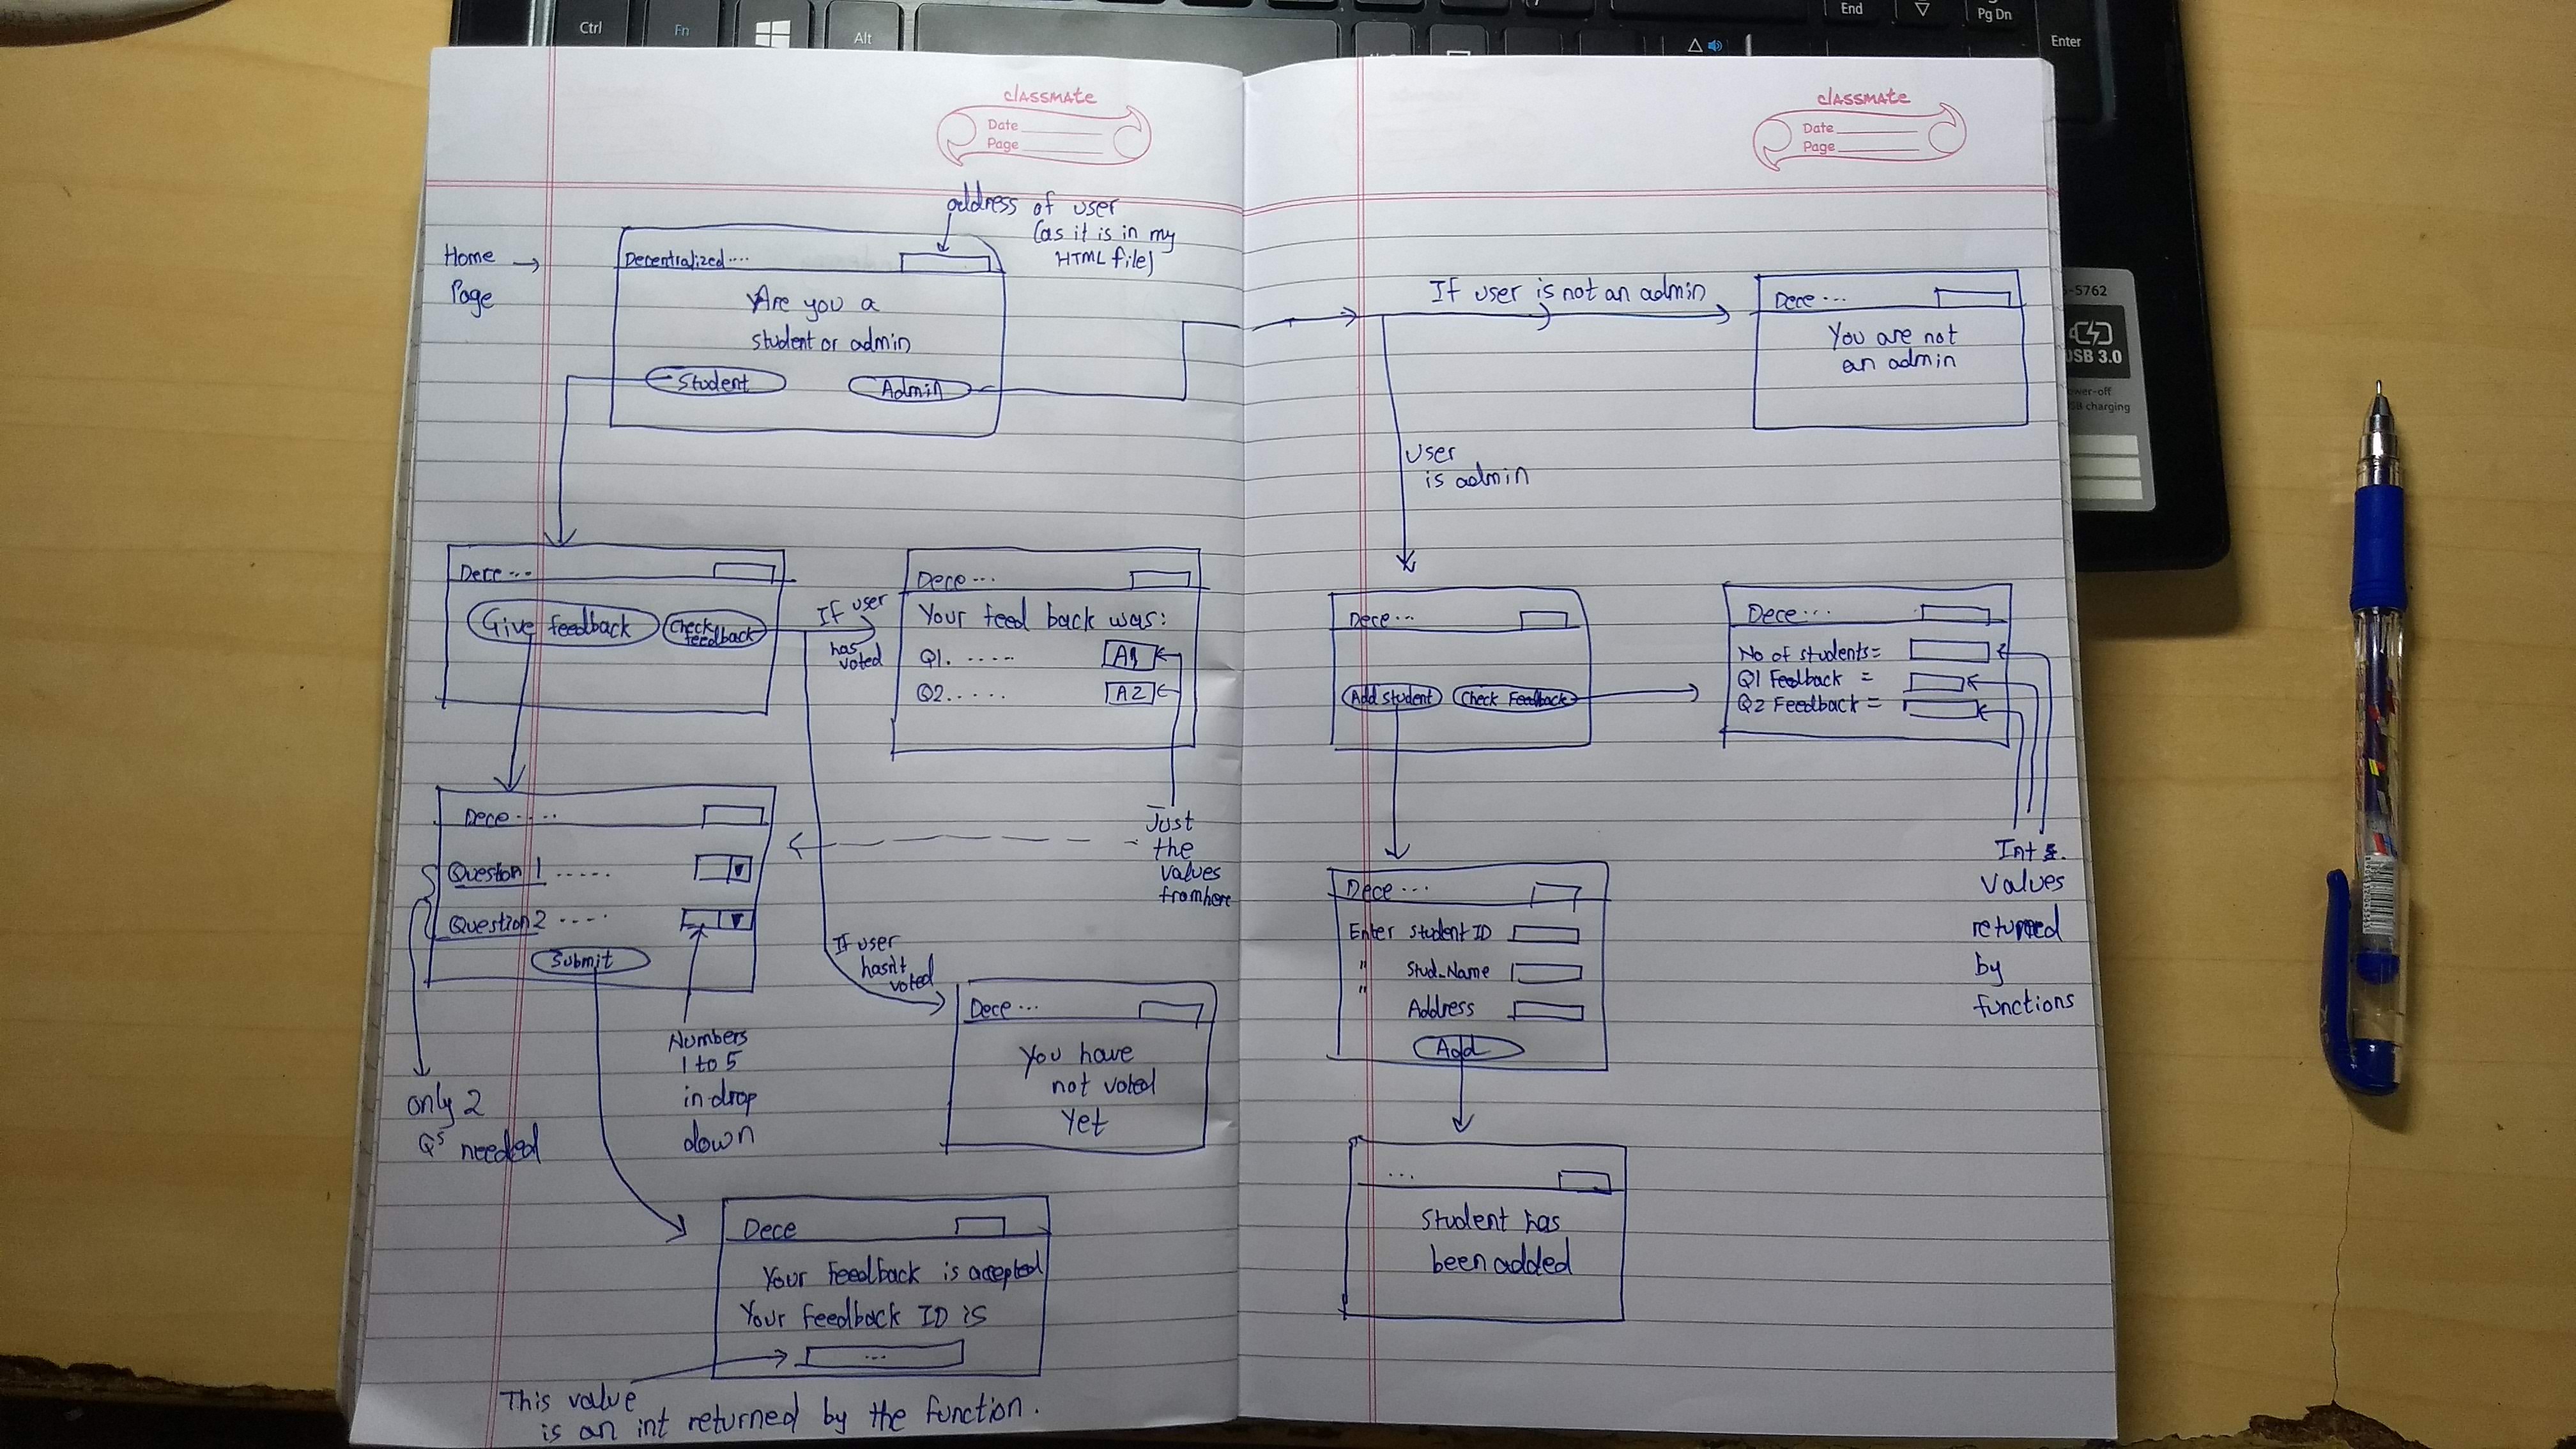 Ctrl
Fn
Alt
End
Pg Dn
Enter
classmate
Date
Page
address of user
(as it is in my
HTML file)
Home
Page
Decentralized....
Are you a
student or admin
Student
Admin
Dece...
Give feedback
Check
feedback
If user
has
voted
Dece...
Your feed back was:
Q1. .....
Q2. ....
A2
Just
the
values
from here
Dece.....
Question 1 .....
Question 2 ....
Submit
only 2
Qs needed
Numbers
1 to 5
in drop
down
If user
hasn't
voted
Dece...
You have
not voted
Yet
Dece
Your feedback is accepted
Your feedback ID is
...
This value
is an int returned by the function.
classmate
Date
Page
If user is not an admin
Dece...
You are not
an admin
User
is admin
Dece...
Add student
Check Feedback
Dece...
No of students=
Q1 Feedback =
Q2 Feedback =
Int
values
returned
by
functions
Dece...
Enter Student ID
" Stud_Name
" Address
Add
...
Student has
been added
-5762
USB 3.0
ower-off
SB charging